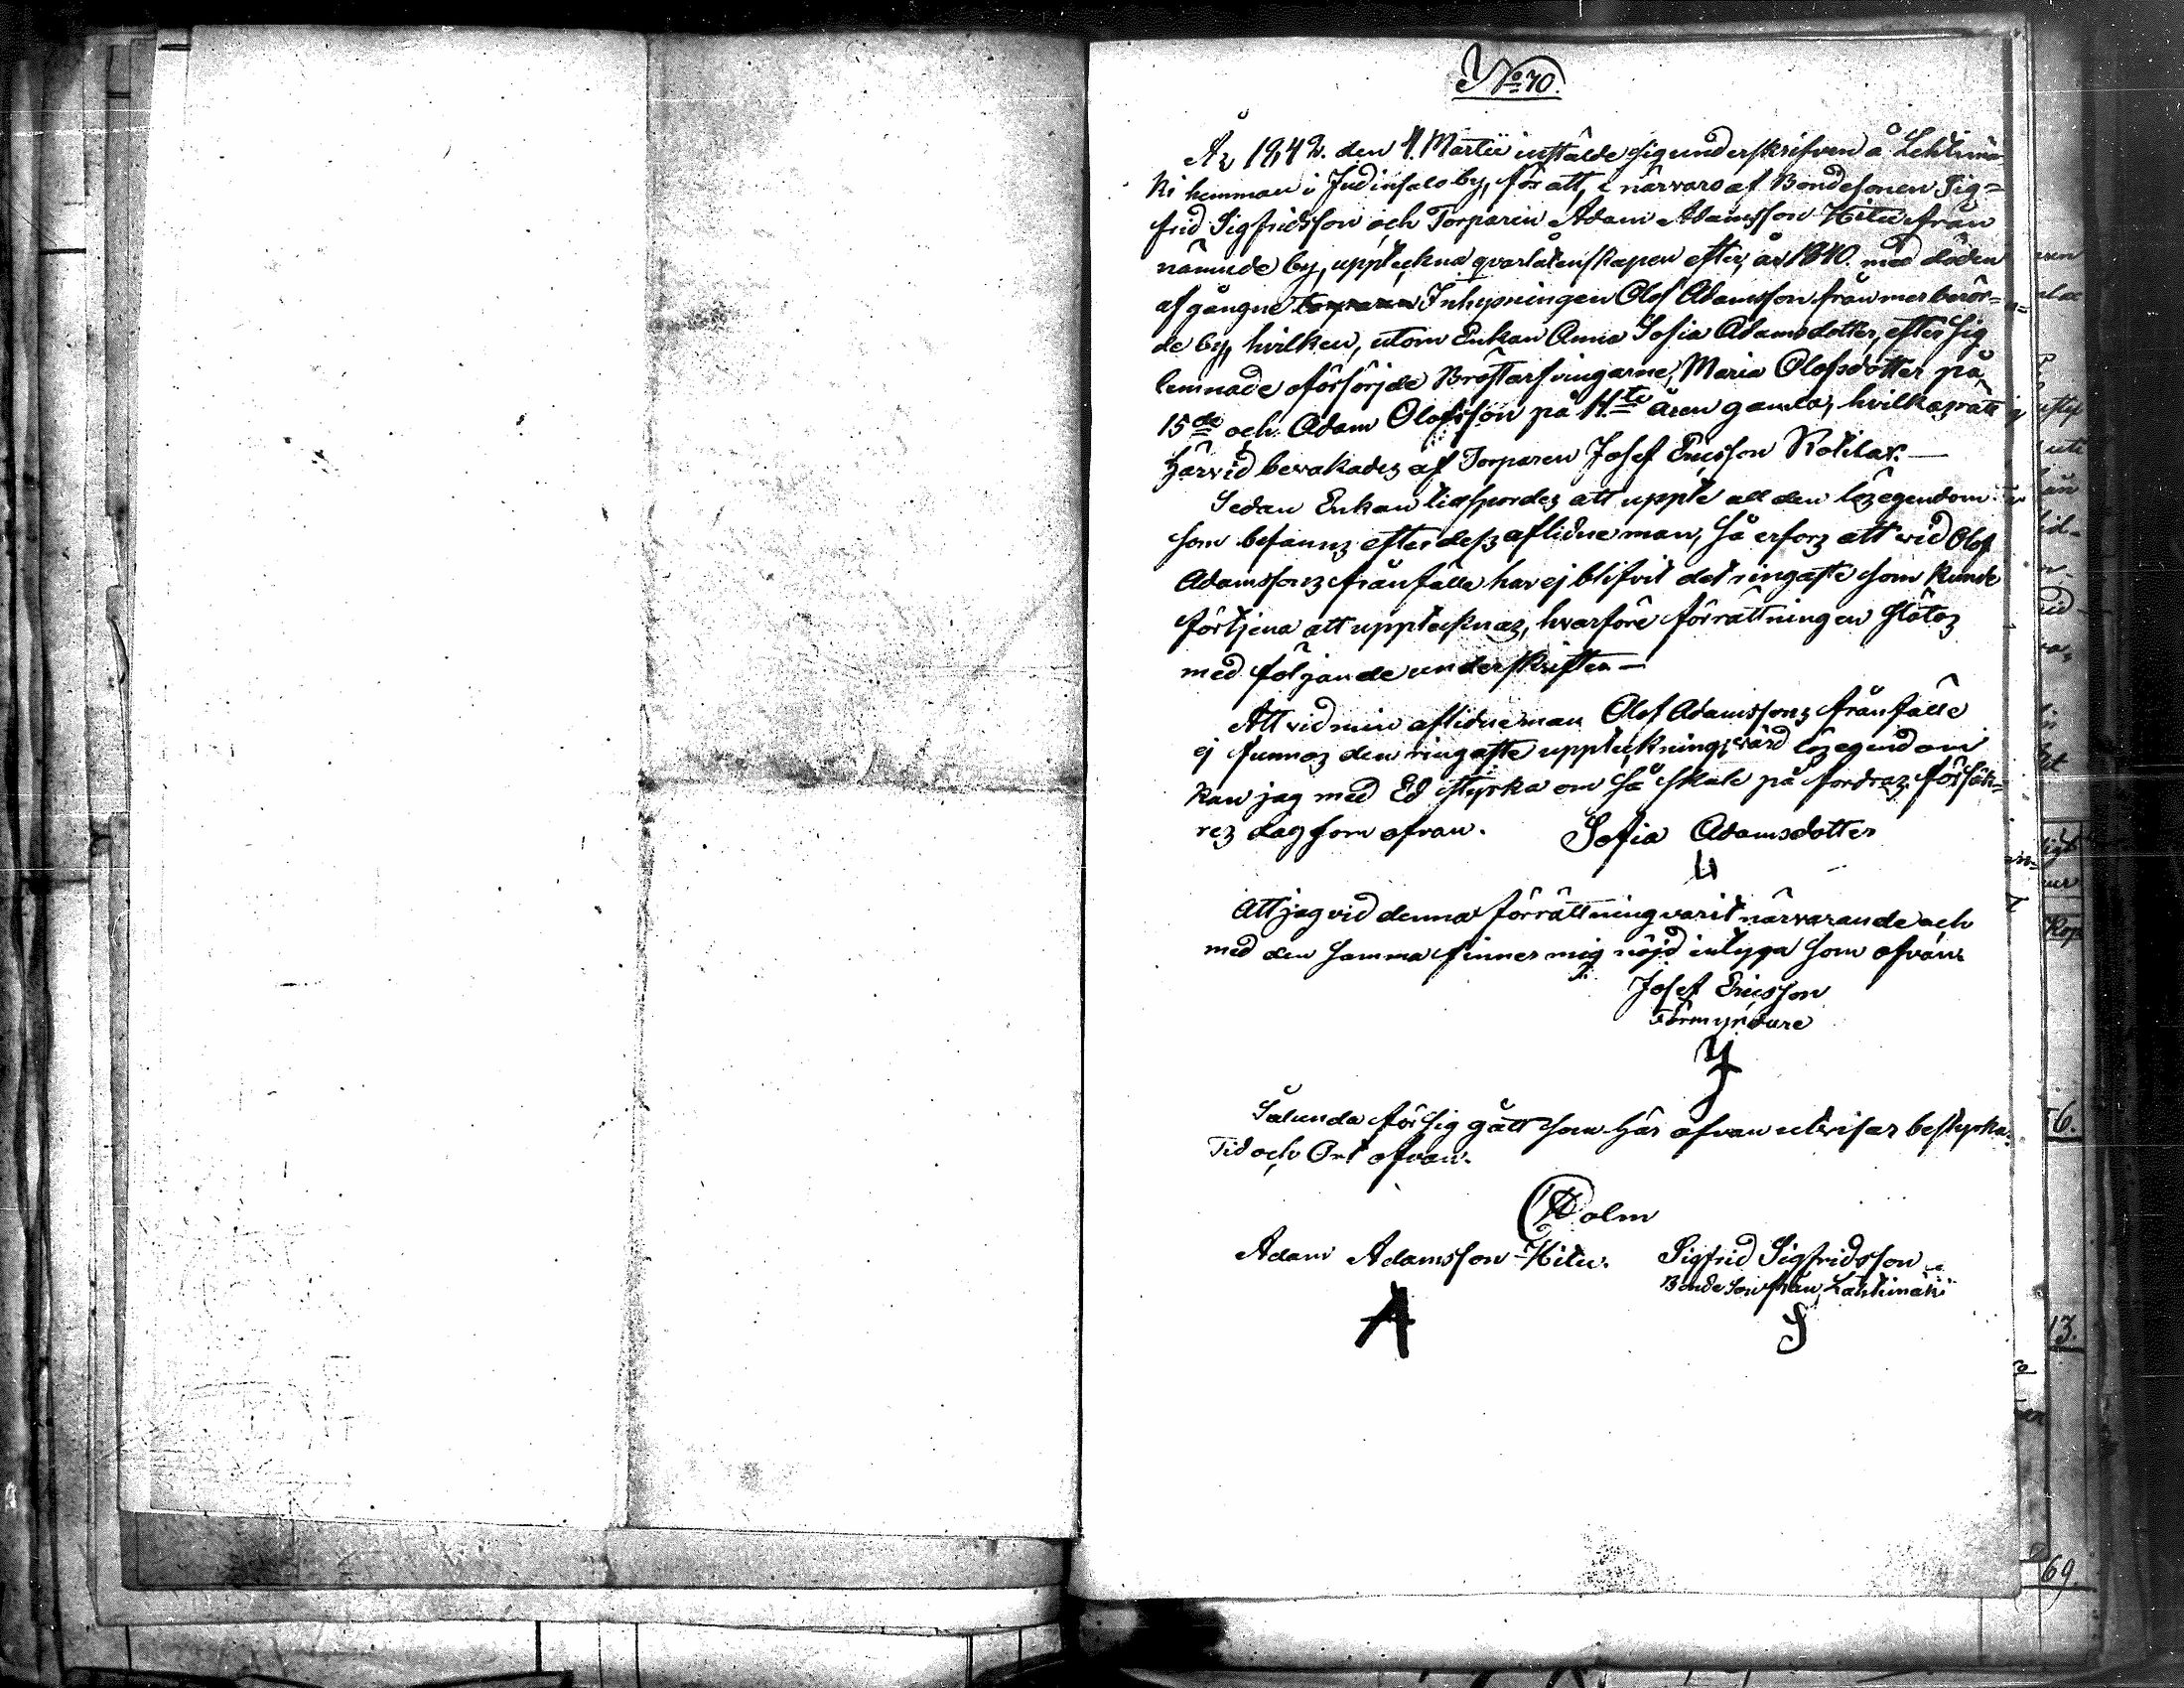 No 70.
År 1842. den 4. Martii instälde sig underskrifven å Lehtimä
ki hemman i Judinsalo by, för att, i närvaro af Bondesonen Sig=
frid Sigfridsson och Torparen Adam Adamsson Hitu från
nämnde by, uppteckna qvarlåtenskapen efter, år 1840. med döden
afgångne Inhysningen Olof Adamsson från merberör=
de by, hvilken, utom Enkan Anna Sofia Adamsdotter, efter sig
lemnade oförsörjde Bröstarfvingarne, Maria Olofsdotter på
15de och Adam Olofsson på 11te åren gamla, hvilkas rätt
härvid bevakades af Torparen Josef Ericsson
Sedan Enkan tillspordes att uppte all den lösegendom
som befanns efter dess aflidne man, så erfors att vid Olof
Adamssons frånfälle har ej blifvit det ringaste som kunde
förtjena att upptecknas, hvarföre förrättningen slöts
med följande underskrifter —
Att vid min aflidne man Olof Adamssons frånfälle
ej funnos den ringaste uppteckningsvärd lösegendom
kan jag med Ed styrka om så skule på fordras försäk=
res dag som ofvan. Sofia Adamsdotter
Att jag vid denna förrättning varit närvarande och
med den samma finner mig nöjd intyga som ofvan
Josef Ericsson
Förmyndare
Sålunda försiggått som här ofvan utvisar bestyrka.
Tid och Ort ofvan.
Holm
Adam Adamsson Hitu. Sigfrid Sigfridsson
Bonde Son från Lähtimäki
A S
6.
13.
69.